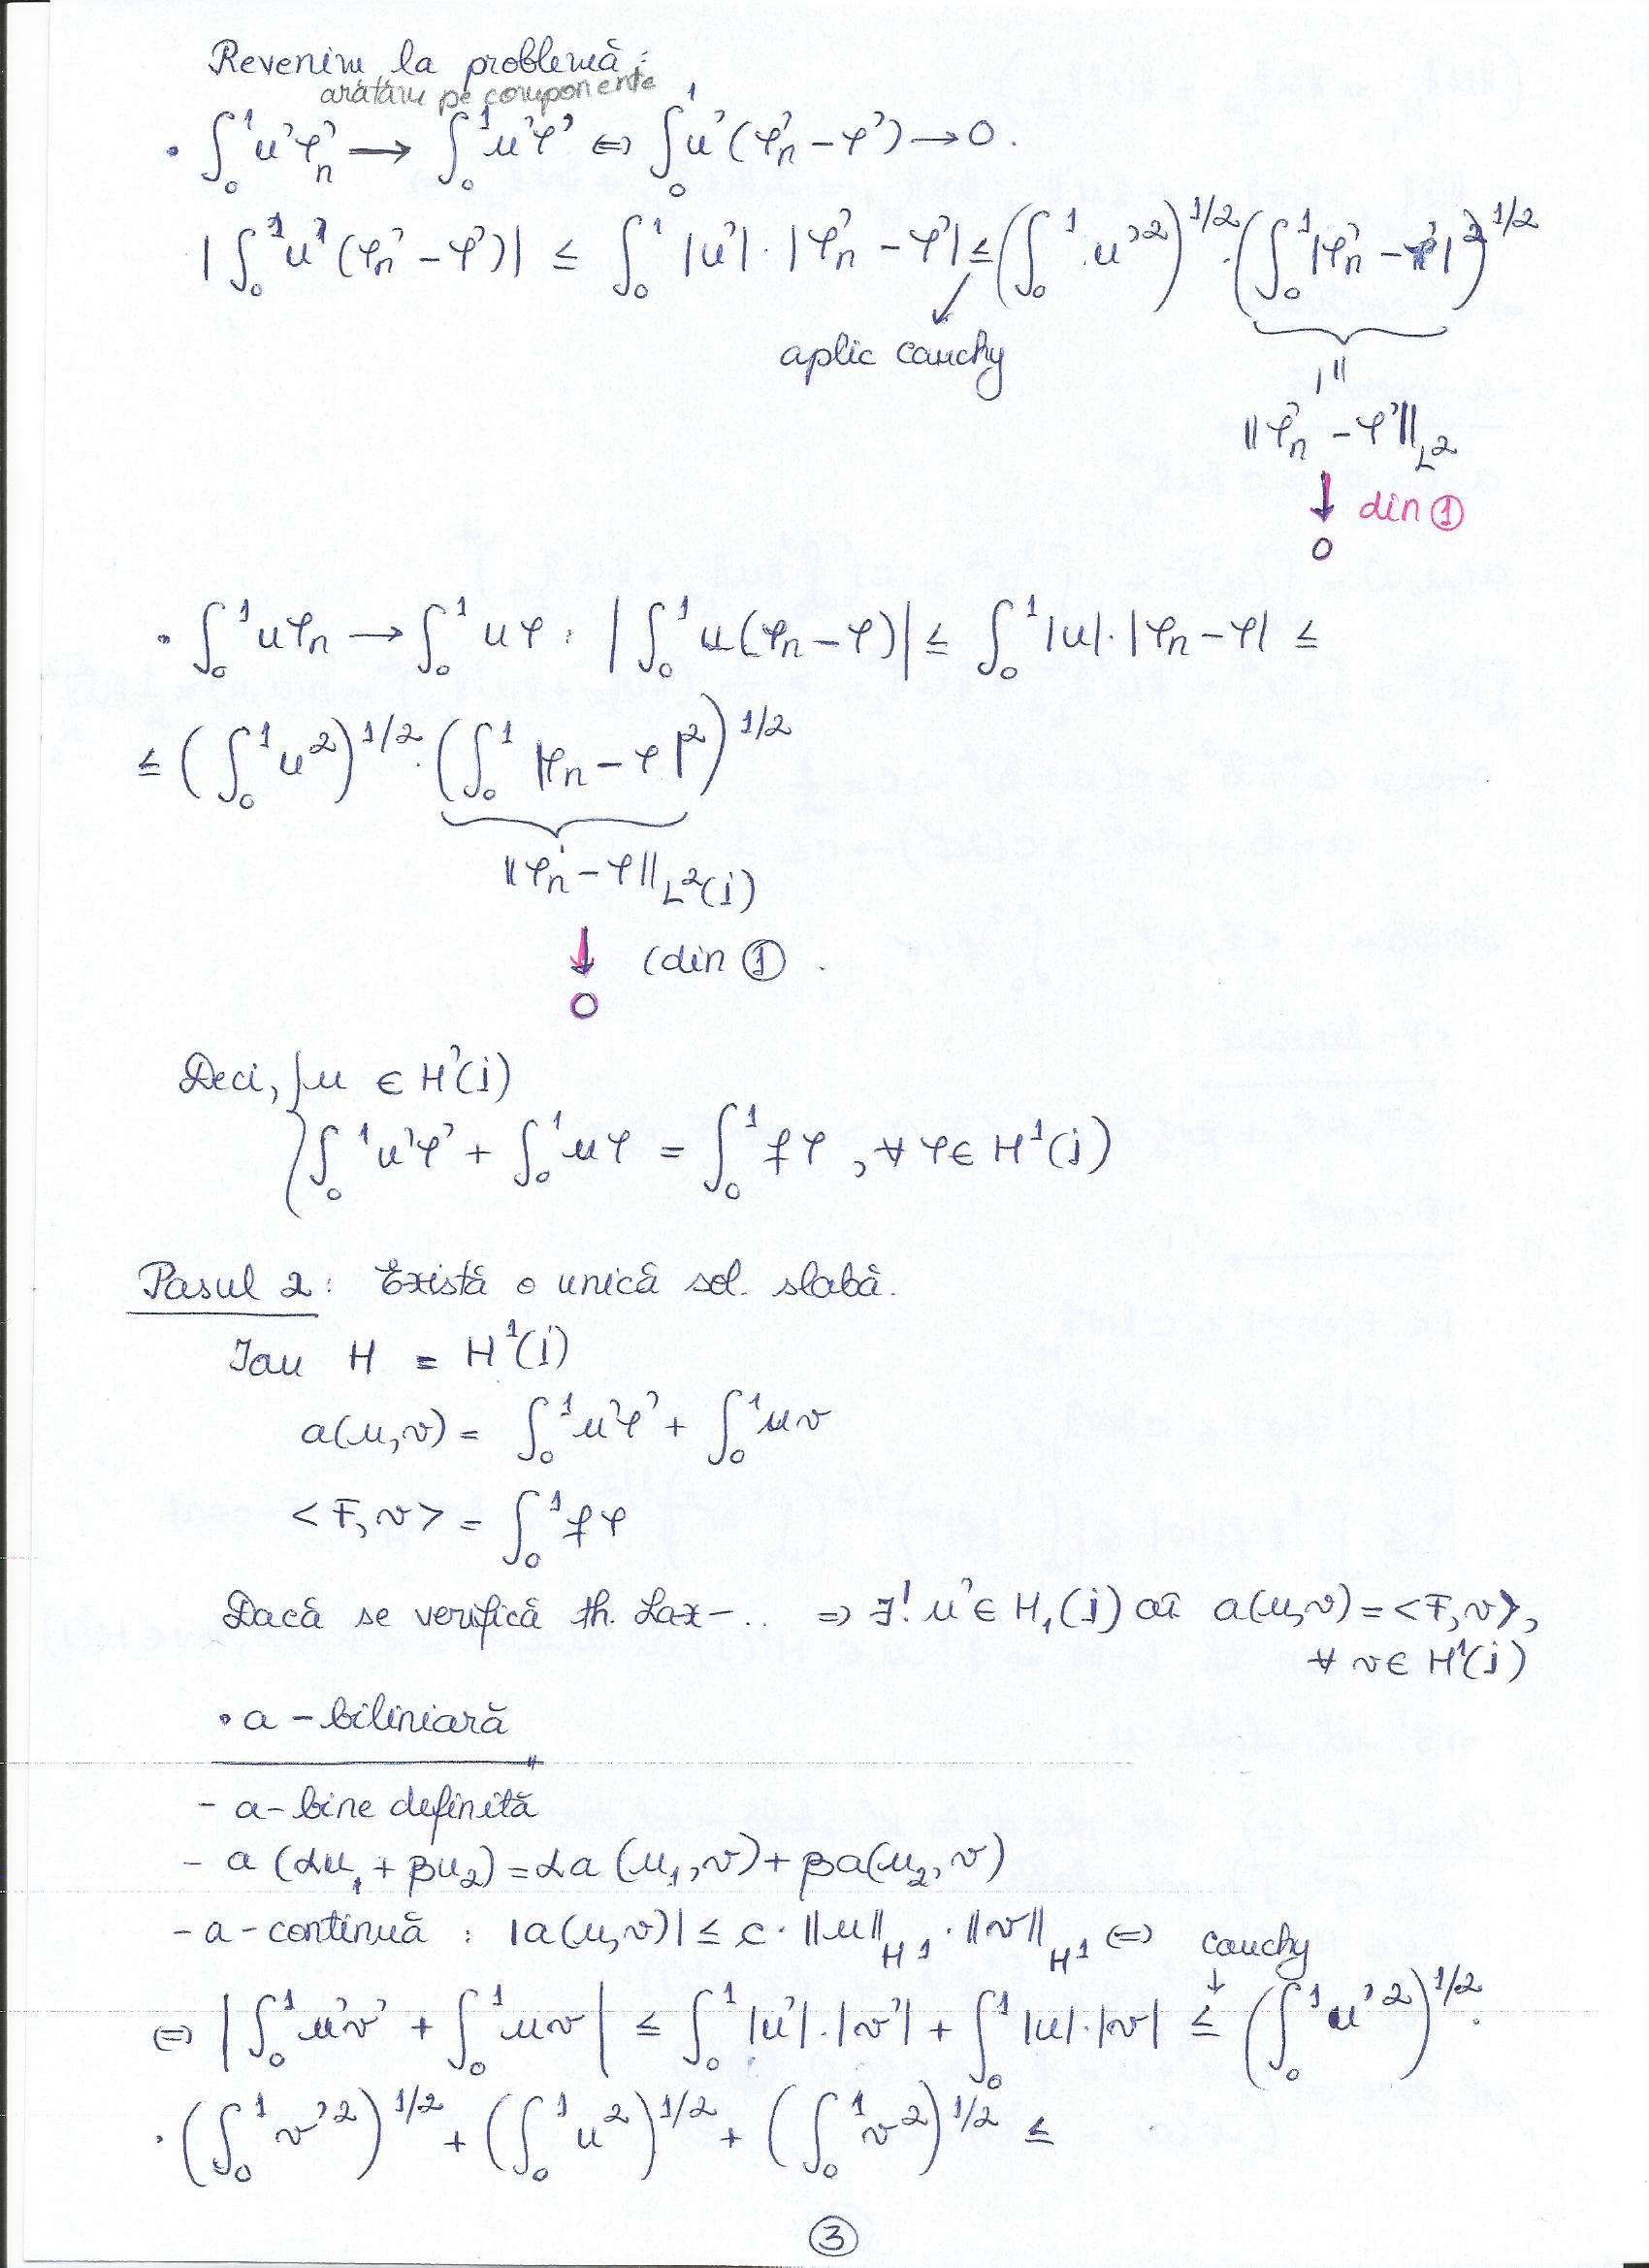 Revenim la problemă:
arătăm pe componente
• ∫₀¹ u'φ'ₙ → ∫₀¹ u'φ' ⇔ ∫₀¹ u'(φ'ₙ - φ') → 0.
|∫₀¹ u'(φ'ₙ - φ')| ≤ ∫₀¹ |u'|·|φ'ₙ - φ'| ≤ (∫₀¹ u'²)^{1/2} · (∫₀¹ |φ'ₙ - φ'|²)^{1/2}
aplic Cauchy
||
||φ'ₙ - φ'||_{L²}
↓ din ①
0
• ∫₀¹ uφₙ → ∫₀¹ uφ : |∫₀¹ u(φₙ - φ)| ≤ ∫₀¹ |u|·|φₙ - φ| ≤
≤ (∫₀¹ u²)^{1/2} · (∫₀¹ |φₙ - φ|²)^{1/2}
||φₙ - φ||_{L²(i)}
↓ (din ①.
0
Deci, { u ∈ H¹(i)
∫₀¹ u'φ' + ∫₀¹ uφ = ∫₀¹ fφ, ∀ φ ∈ H¹(i)
Pasul 2: Există o unică sol. slabă.
Iau H = H¹(i)
a(u,v) = ∫₀¹ u'φ' + ∫₀¹ uv
<F,v> = ∫₀¹ fφ
Dacă se verifică th. Lax-.. ⇒ ∃! u' ∈ H₁(i) aî a(u,v) = <F,v>,
∀ v ∈ H¹(i)
• a - biliniară
- a - bine definită
- a (αu₁ + βu₂) = αa (u₁,v) + βa(u₂,v)
- a - continuă : |a(u,v)| ≤ c · ||u||_{H¹} · ||v||_{H¹} ⇔
Cauchy
↓
⇔ |∫₀¹ u'v' + ∫₀¹ uv| ≤ ∫₀¹ |u'|·|v'| + ∫₀¹ |u|·|v| ≤ (∫₀¹ u'²)^{1/2} ·
· (∫₀¹ v'²)^{1/2} + (∫₀¹ u²)^{1/2} + (∫₀¹ v²)^{1/2} ≤
③